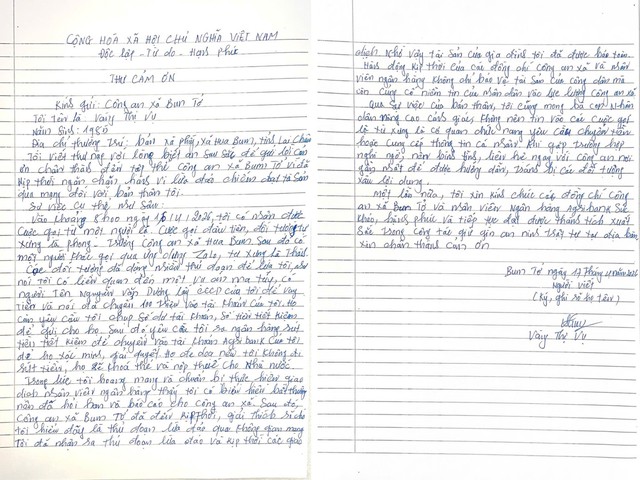 CỘNG HÓA XÃ HỘI CHỦ NGHĨA VIỆT NAM
Độc lập - Tự do - Hạnh phúc
THƯ CẢM ƠN
Kính gửi: Công an xã Bum Tở
Tôi tên là: Vàng Thị Vụ
Năm sinh: 1980
Địa chỉ thường trú: bản xã phà, xã Hua Bum, tỉnh Lai Châu
Tôi viết thư này với lòng biết ơn sâu sắc để gửi lời cảm
ơn chân thành đến tập thể công an xã Bum Tở vì đã
kịp thời ngăn chặn, hành vi lừa đảo chiếm đoạt tài sản
qua mạng đối với bản thân tôi.
Sự việc cụ thể như sau:
Vào khoảng 8h00 ngày /4/2026, tôi có nhận được
cuộc gọi từ một người lạ. Cuộc gọi đầu tiên, đối tượng tự
xưng là phong - Trưởng công an xã Hua Bum sau đó có
một người khác gọi qua ứng dụng Zalo, tự xưng là Thái
Các đối tượng đã dùng nhiều thủ đoạn để lừa tôi,
nói tôi có liên quan đến một vụ án ma túy, có
người tên Nguyễn Văn Dương lấy CCCD của tôi để vay
tiền và nói đã chuyển 100 triệu vào tài khoản của tôi. Họ
còn yêu cầu tôi chụp số dư tài khoản, sổ tiền tiết kiệm
để gửi cho họ. Sau đó yêu cầu tôi ra ngân hàng rút
tiền tiết kiệm để chuyển vào tài khoản Agribank của tôi
để họ xác minh, giải quyết họ đe dọa nếu tôi không đi
rút tiền, họ sẽ khóa thẻ và nộp thuế cho nhà nước.
Trong lúc tôi hoang mang và chuẩn bị thực hiện giao
dịch nhân viên ngân hàng thấy tôi có biểu hiện bất thường
nên đã hỏi han và báo cáo cho công an xã. Sau đó
công an xã Bum Tở đã đến kịp thời, giải thích rõ cho
tôi hiểu đây là thủ đoạn lừa đảo qua không gian mạng
Tôi đã nhận ra thủ đoạn lừa đảo và kịp thời các giao
dịch. Nhờ vậy tài sản của gia đình tôi đã được bảo toàn.
Hành động kịp thời của các đồng chí công an xã và nhân
viên ngân hàng không chỉ bảo vệ tài sản của công dân mà
còn củng cố niềm tin của nhân dân vào lực lượng công an xã
Qua sự việc của bản thân, tôi cũng mong bà con nhân
dân nâng cao cảnh giác, không nên tin vào các cuộc gọi
lạ tự xưng là cơ quan chức năng yêu cầu chuyển tiền
hoặc cung cấp thông tin cá nhân. Khi gặp trường hợp
nghi ngờ, nên bình tĩnh, liên hệ ngay với công an nơi
gần nhất để được hướng dẫn, tránh bị các đối tượng
xấu lợi dụng.
Một lần nữa, tôi xin kính chúc các đồng chí công
an xã Bum Tở và nhân viên ngân hàng Agribank sức
khỏe, hạnh phúc và tiếp tục đạt được thành tích xuất
sắc trong công tác giữ gìn an ninh trật tự tại địa bàn
xin chân thành cảm ơn
Bum Tở ngày 17 tháng 4 năm 2026
Người viết
(ký, ghi rõ họ tên)
Vàng Thị Vụ